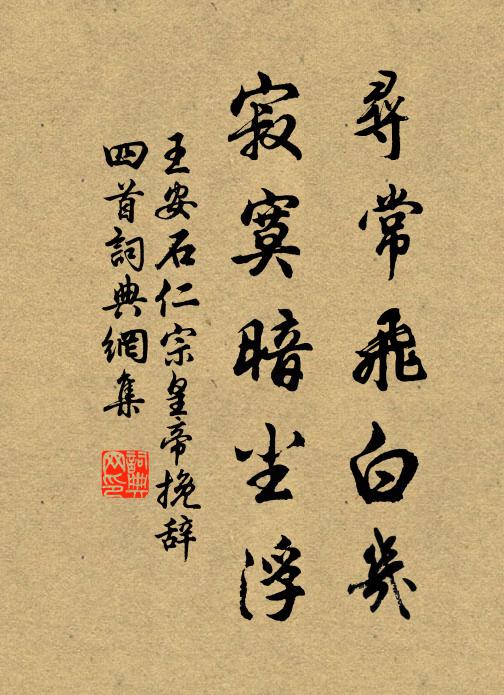 尋常飛白幾
寂寞暗尘浮
王安石仁宗皇帝挽辞
四首詞典網集
詞典
网印